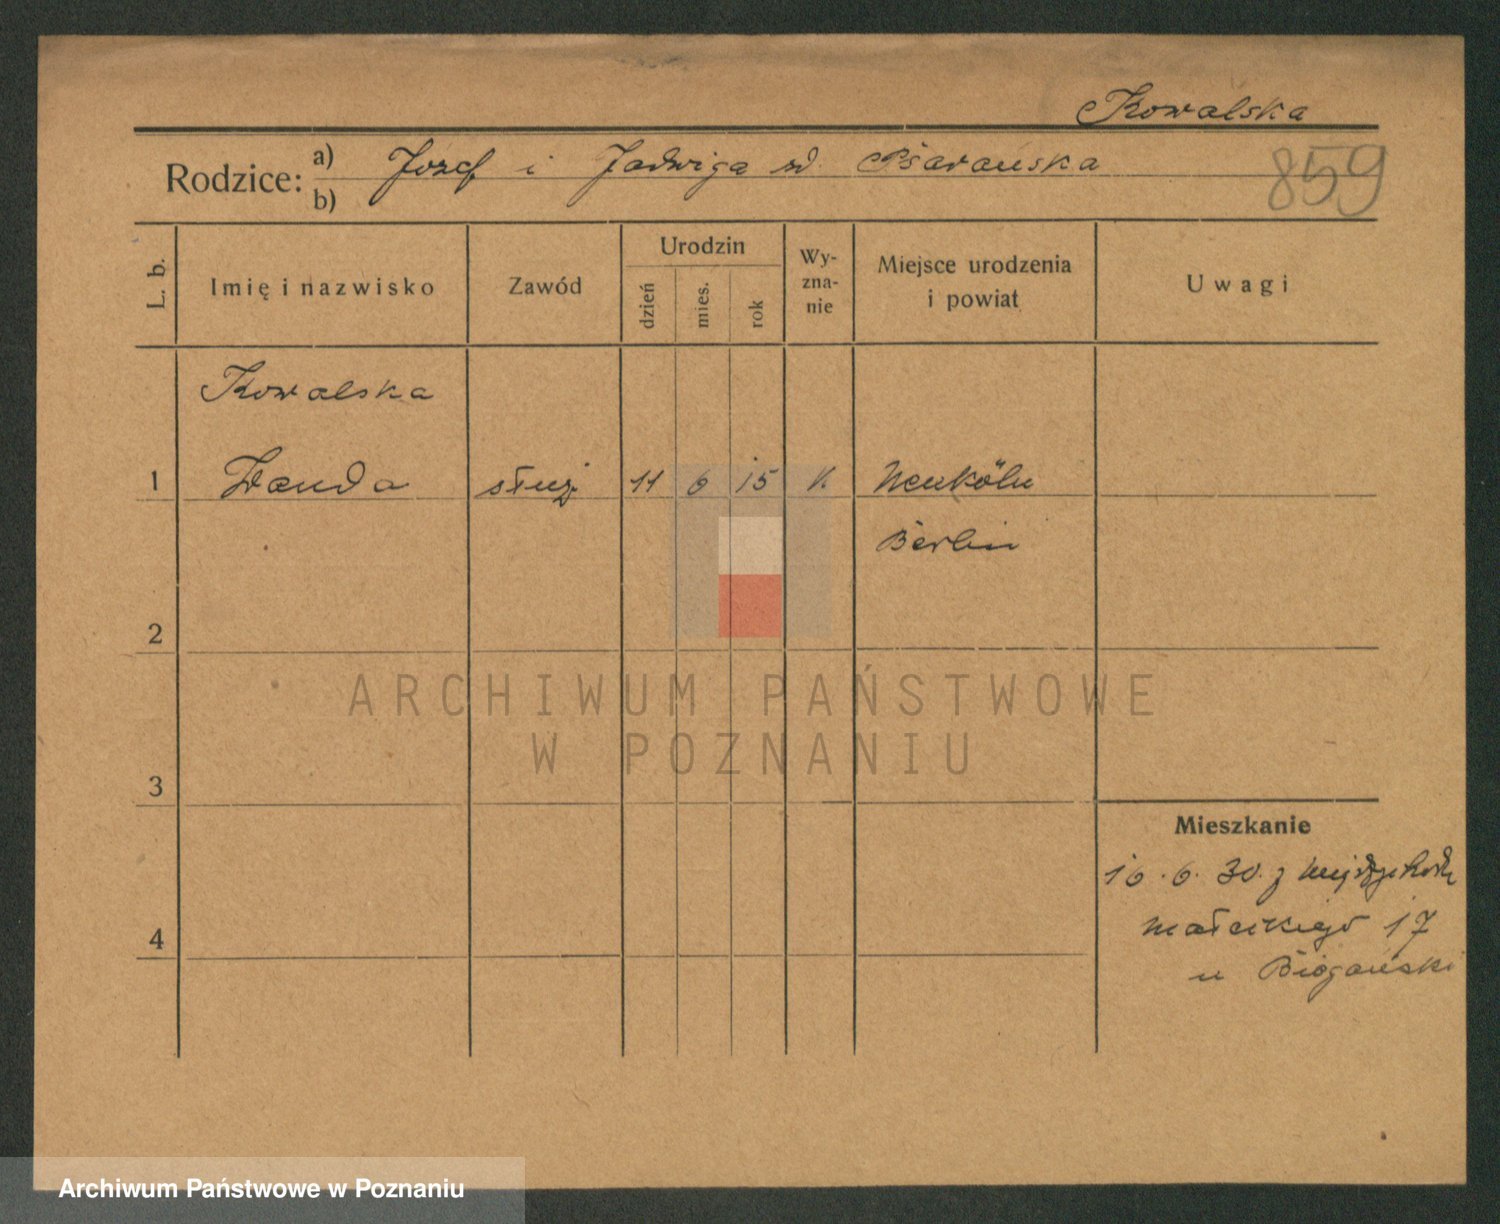 Kowalska
Rodzice: a) Józef i Jadwiga zd.
b)
859
L. b.
Imię i nazwisko
Zawód
Urodzin
dzień
mies.
rok
Wy-
zna-
nie
Miejsce urodzenia
i powiat
Uwagi
Kowalska
1 Wanda służ 11 6 15 k. Neukölln
Berlin
2
3
4
Mieszkanie
16.6.30. z
Małeckiego 17
u
ARCHIWUM PAŃSTWOWE
W POZNANIU
Archiwum Państwowe w Poznaniu